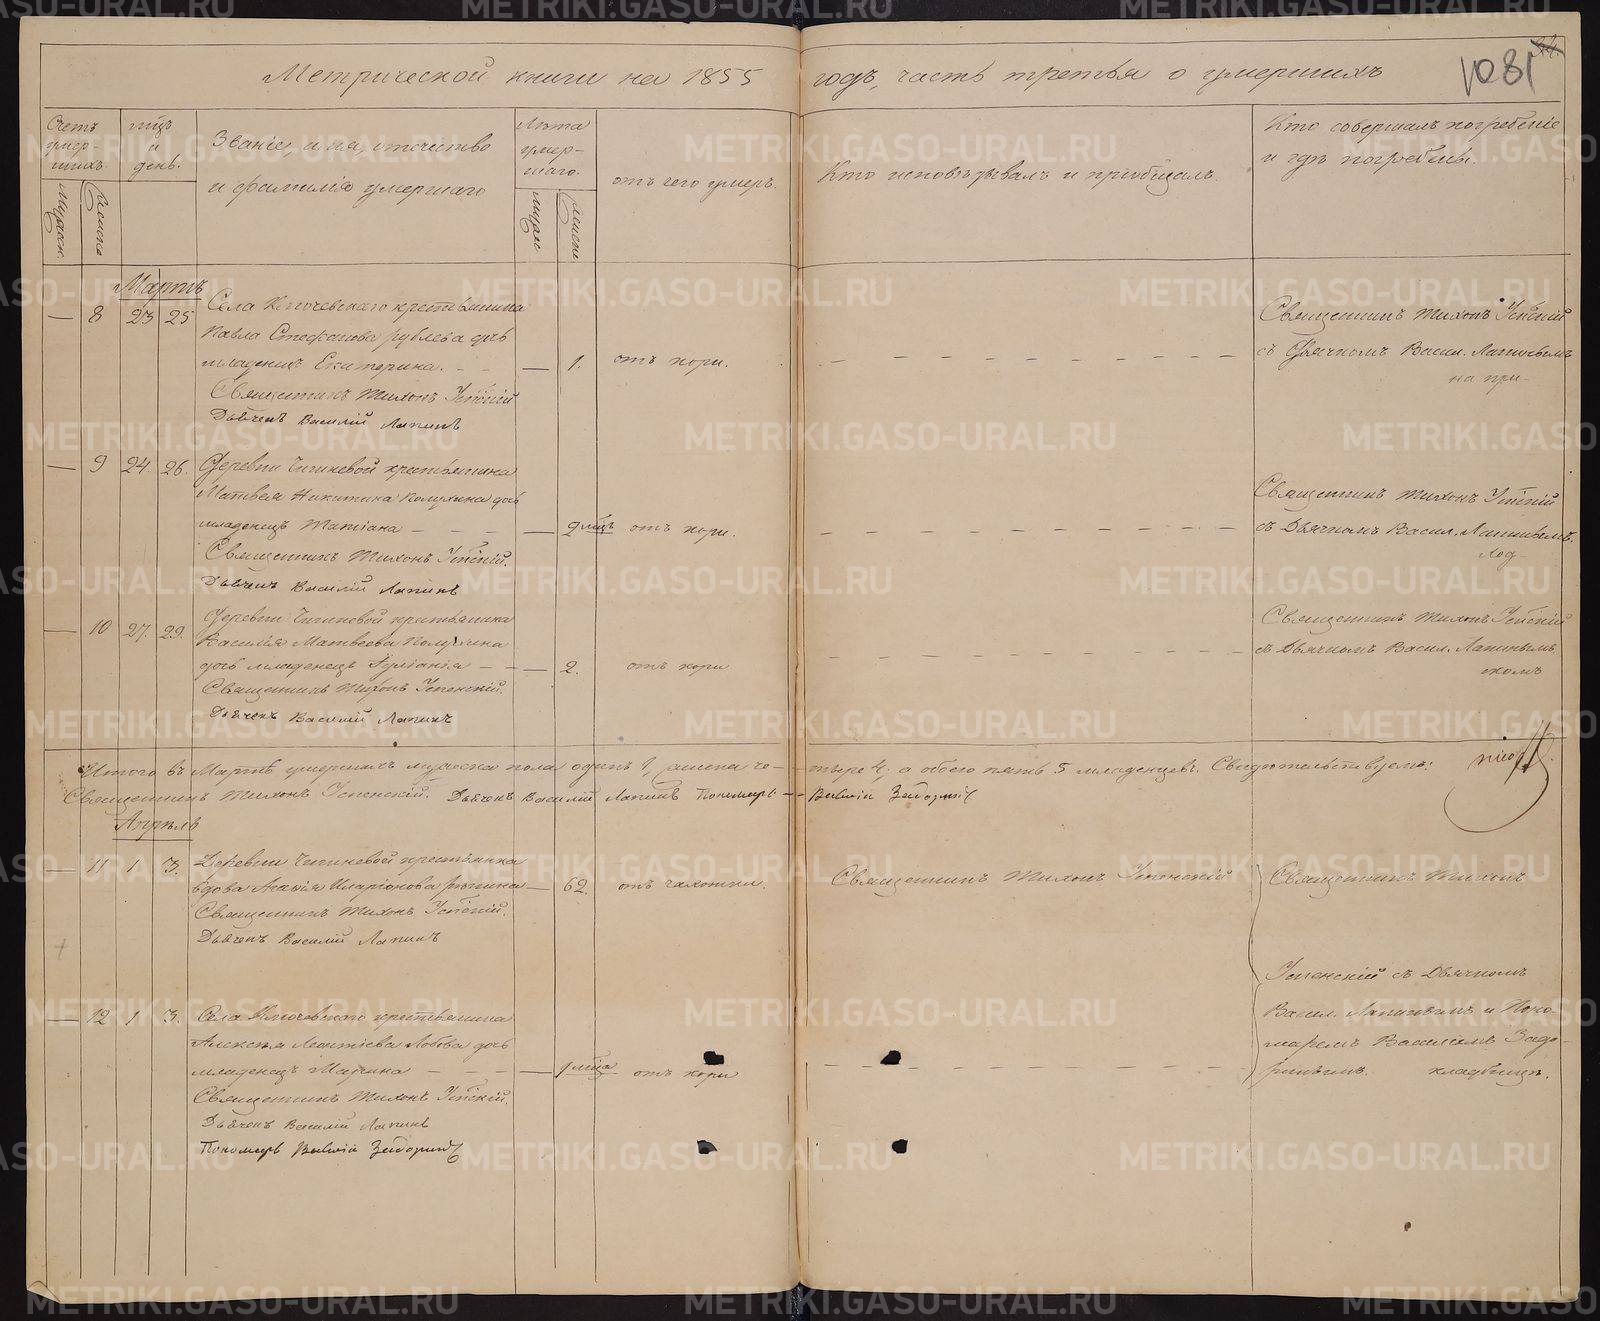 Метрической книги на 1855 годъ, часть третья о умершихъ
1081
Счетъ умер-шихъ.
Мужеск.
Женска
мцъ и день.
Званіе, имя, отчество
и фамилія умершаго
Лѣта умер-шаго.
мужс
женск
отъ чего умеръ.
Кто исповѣдывалъ и приобщалъ.
Кто совершалъ погребеніе
и гдѣ погребены.
Мартъ
— 8 23 25 Села Ключевскаго крестьянина
Павла Стефанова Рублева дочь
младенецъ Екатерина. — 1. отъ кори.
Священникъ Тихонъ Успѣскій
Дьячекъ Василій Лапинъ
Священникъ Тихонъ Успѣскій
съ Дьячкомъ Васил. Лапинымъ
на при-
— 9 24. 26. Деревни Чигиневой крестьянина
Матвея Никитина Полухина дочь
младенецъ Татіана — 9 мцъ отъ кори.
Священникъ Тихонъ Успѣскій.
Дьячекъ Василій Лапинъ
Священникъ Тихонъ Успѣскій
съ Дьячкомъ Васил. Лапинымъ.
ход-
— 10 27. 29. Деревни Чигиневой крестьянина
Василья Матвеева Полухина
дочь младенецъ Іуліанія — 2. отъ кори
Священникъ Тихонъ Успенскій.
Дьячекъ Василій Лапинъ
Священникъ Тихонъ Успѣскій
съ Дьячкомъ Васил. Лапинымъ
скомъ
Итого въ Мартѣ умершихъ мужеска пола одинъ 1, женска че-тыре 4, а обоего пять 5 младенцевъ. Свидѣтельствуемъ:
Священникъ Тихонъ Успенскій. Дьячекъ Василій Лапинъ Пономарь Василій Задоринъ
Апрѣль
— 11 1 3. Деревни Чигиневой крестьянка
вдова Агафія Иларіонова — 62. отъ чахотки. Священникъ Тихонъ Успенскій
Священникъ Тихонъ Успѣскій.
Дьячекъ Василій Лапинъ
Священникъ Тихонъ
Успенскій съ Дьячкомъ
Васил. Лапинымъ и Поно-
маремъ Василіемъ Задо-
ринымъ. кладбищѣ.
— 12 1 3. Села Ключевскаго крестьянина
Алексѣя Леонтіева Лобова дочь
младенецъ Марина — 9 мцъ отъ кори
Священникъ Тихонъ Успѣскій.
Дьячекъ Василій Лапинъ
Пономарь Василій Задоринъ
METRIKI.GASO-URAL.RU